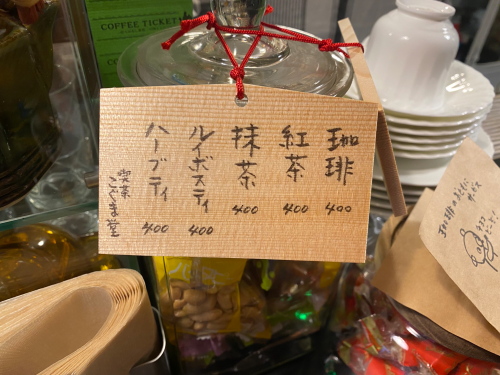 COFFEE TICKET
珈琲
400
紅茶
400
抹茶
400
ルイボスティ
400
ハーブティ
400
喫茶
こぐま堂
珈琲のおともに
サービス